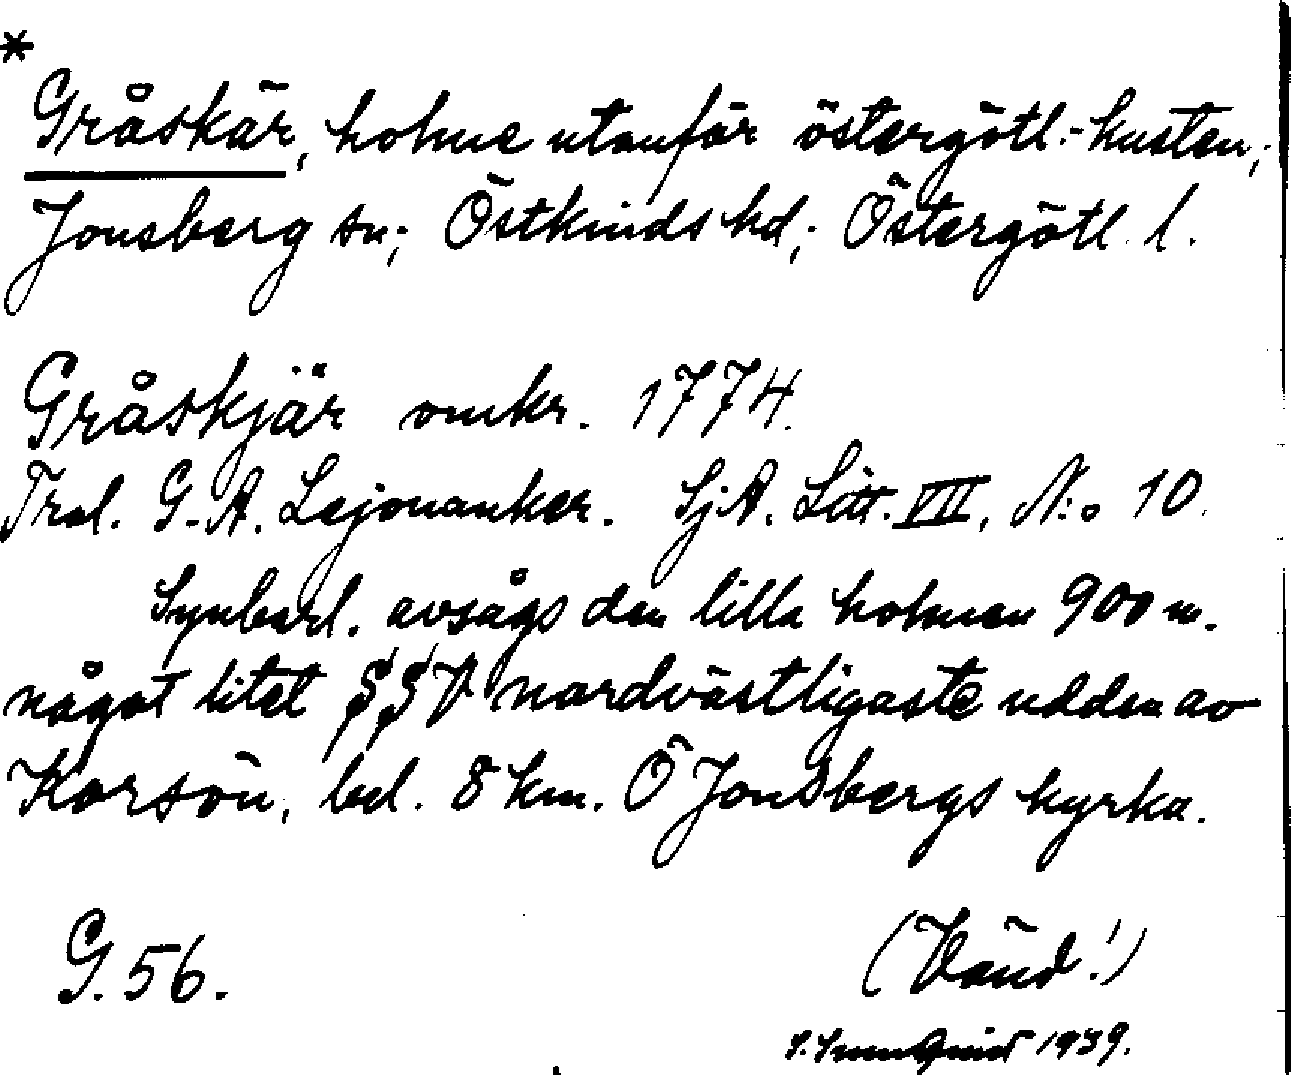 *
Gråskär, holme utanför östergötl.-kusten,;
Jonsberg sn; Östkinds hd; Östergötl. l.
Gråskjär omkr. 1774.
Trol. G. A. Lejonanker. SjA. Litt. VII, N:o 10.
Synbarl. avsågs den lilla holmen 900 m.
något litet SSV nordvästligaste udden av
Korsön, bel. 8 km. Ö Jonsbergs kyrka.
G. 56.
(Vänd!)
1939.